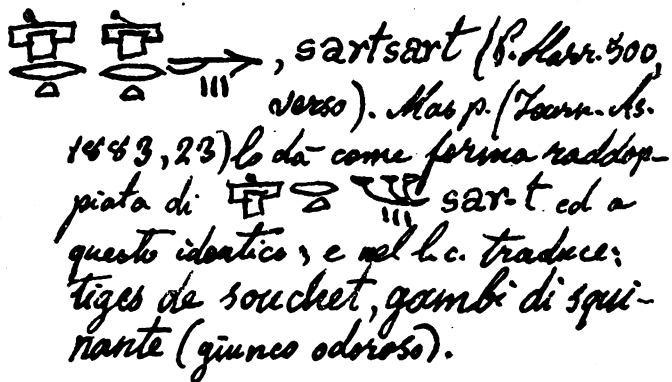 , sartsart (P. Harr. 500,
verso). Masp. (Journ. As.
1883, 23) lo dà come forma raddop-
piata di sar-t ed a
questo identico, e nel l. c. traduce:
tiges de souchet, gambi di squi-
nante (giunco odoroso).